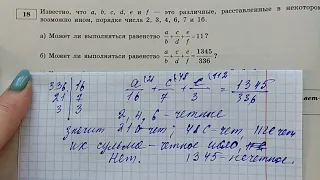 18 Известно, что a, b, c, d, e и f — это различные, расставленные в некотором,
возможно ином, порядке числа 2, 3, 4, 6, 7 и 16.
а) Может ли выполняться равенство a/b + c/d + e/f = 11?
б) Может ли выполняться равенство a/b + c/d + e/f = 1345/336?
336 | 16
21 | 7
3 | 3
a/16 + c/7 + e/3 = 1345/336
2, 4, 6 - четные
значит 21a чет; 48c чет, 112e чет
их сумма - четное число,
Нет. 1345 - нечетное.